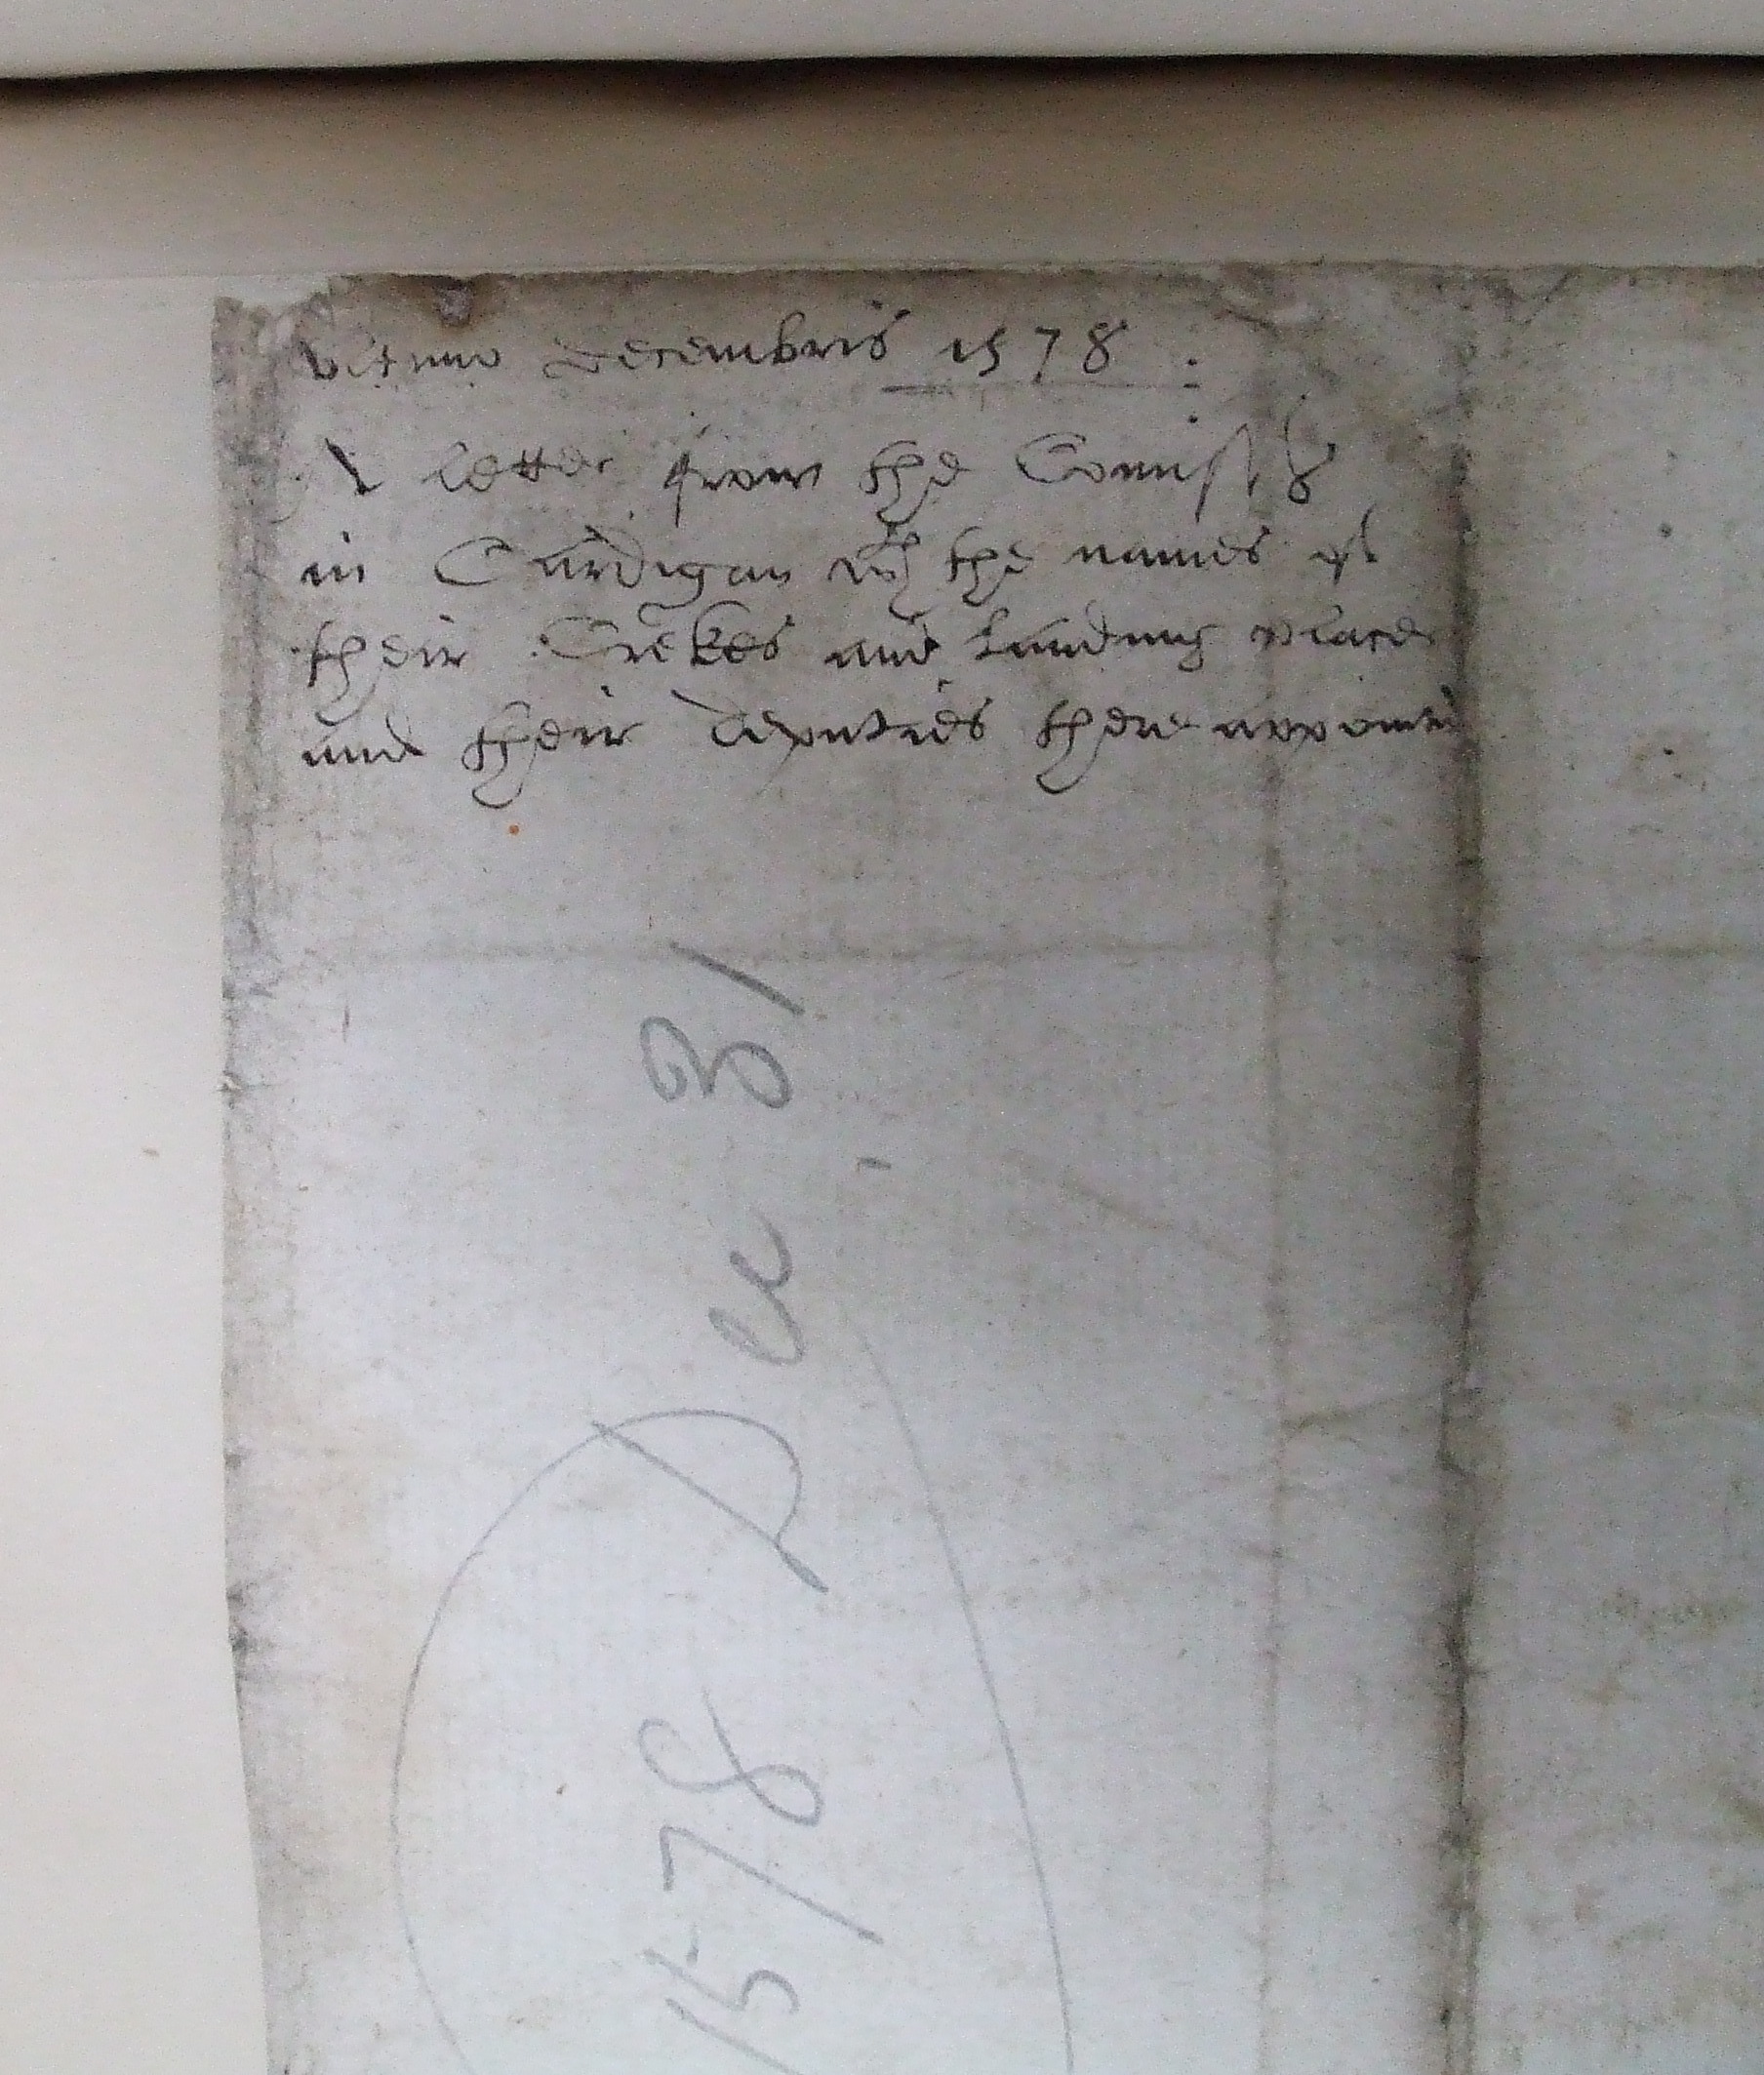 vltimo Decembris 1578 :
A letter from the Comiss
in Cardigan wth the names of
their Crekes and landing places
and their deputies there appoint
1578 Dec. 31